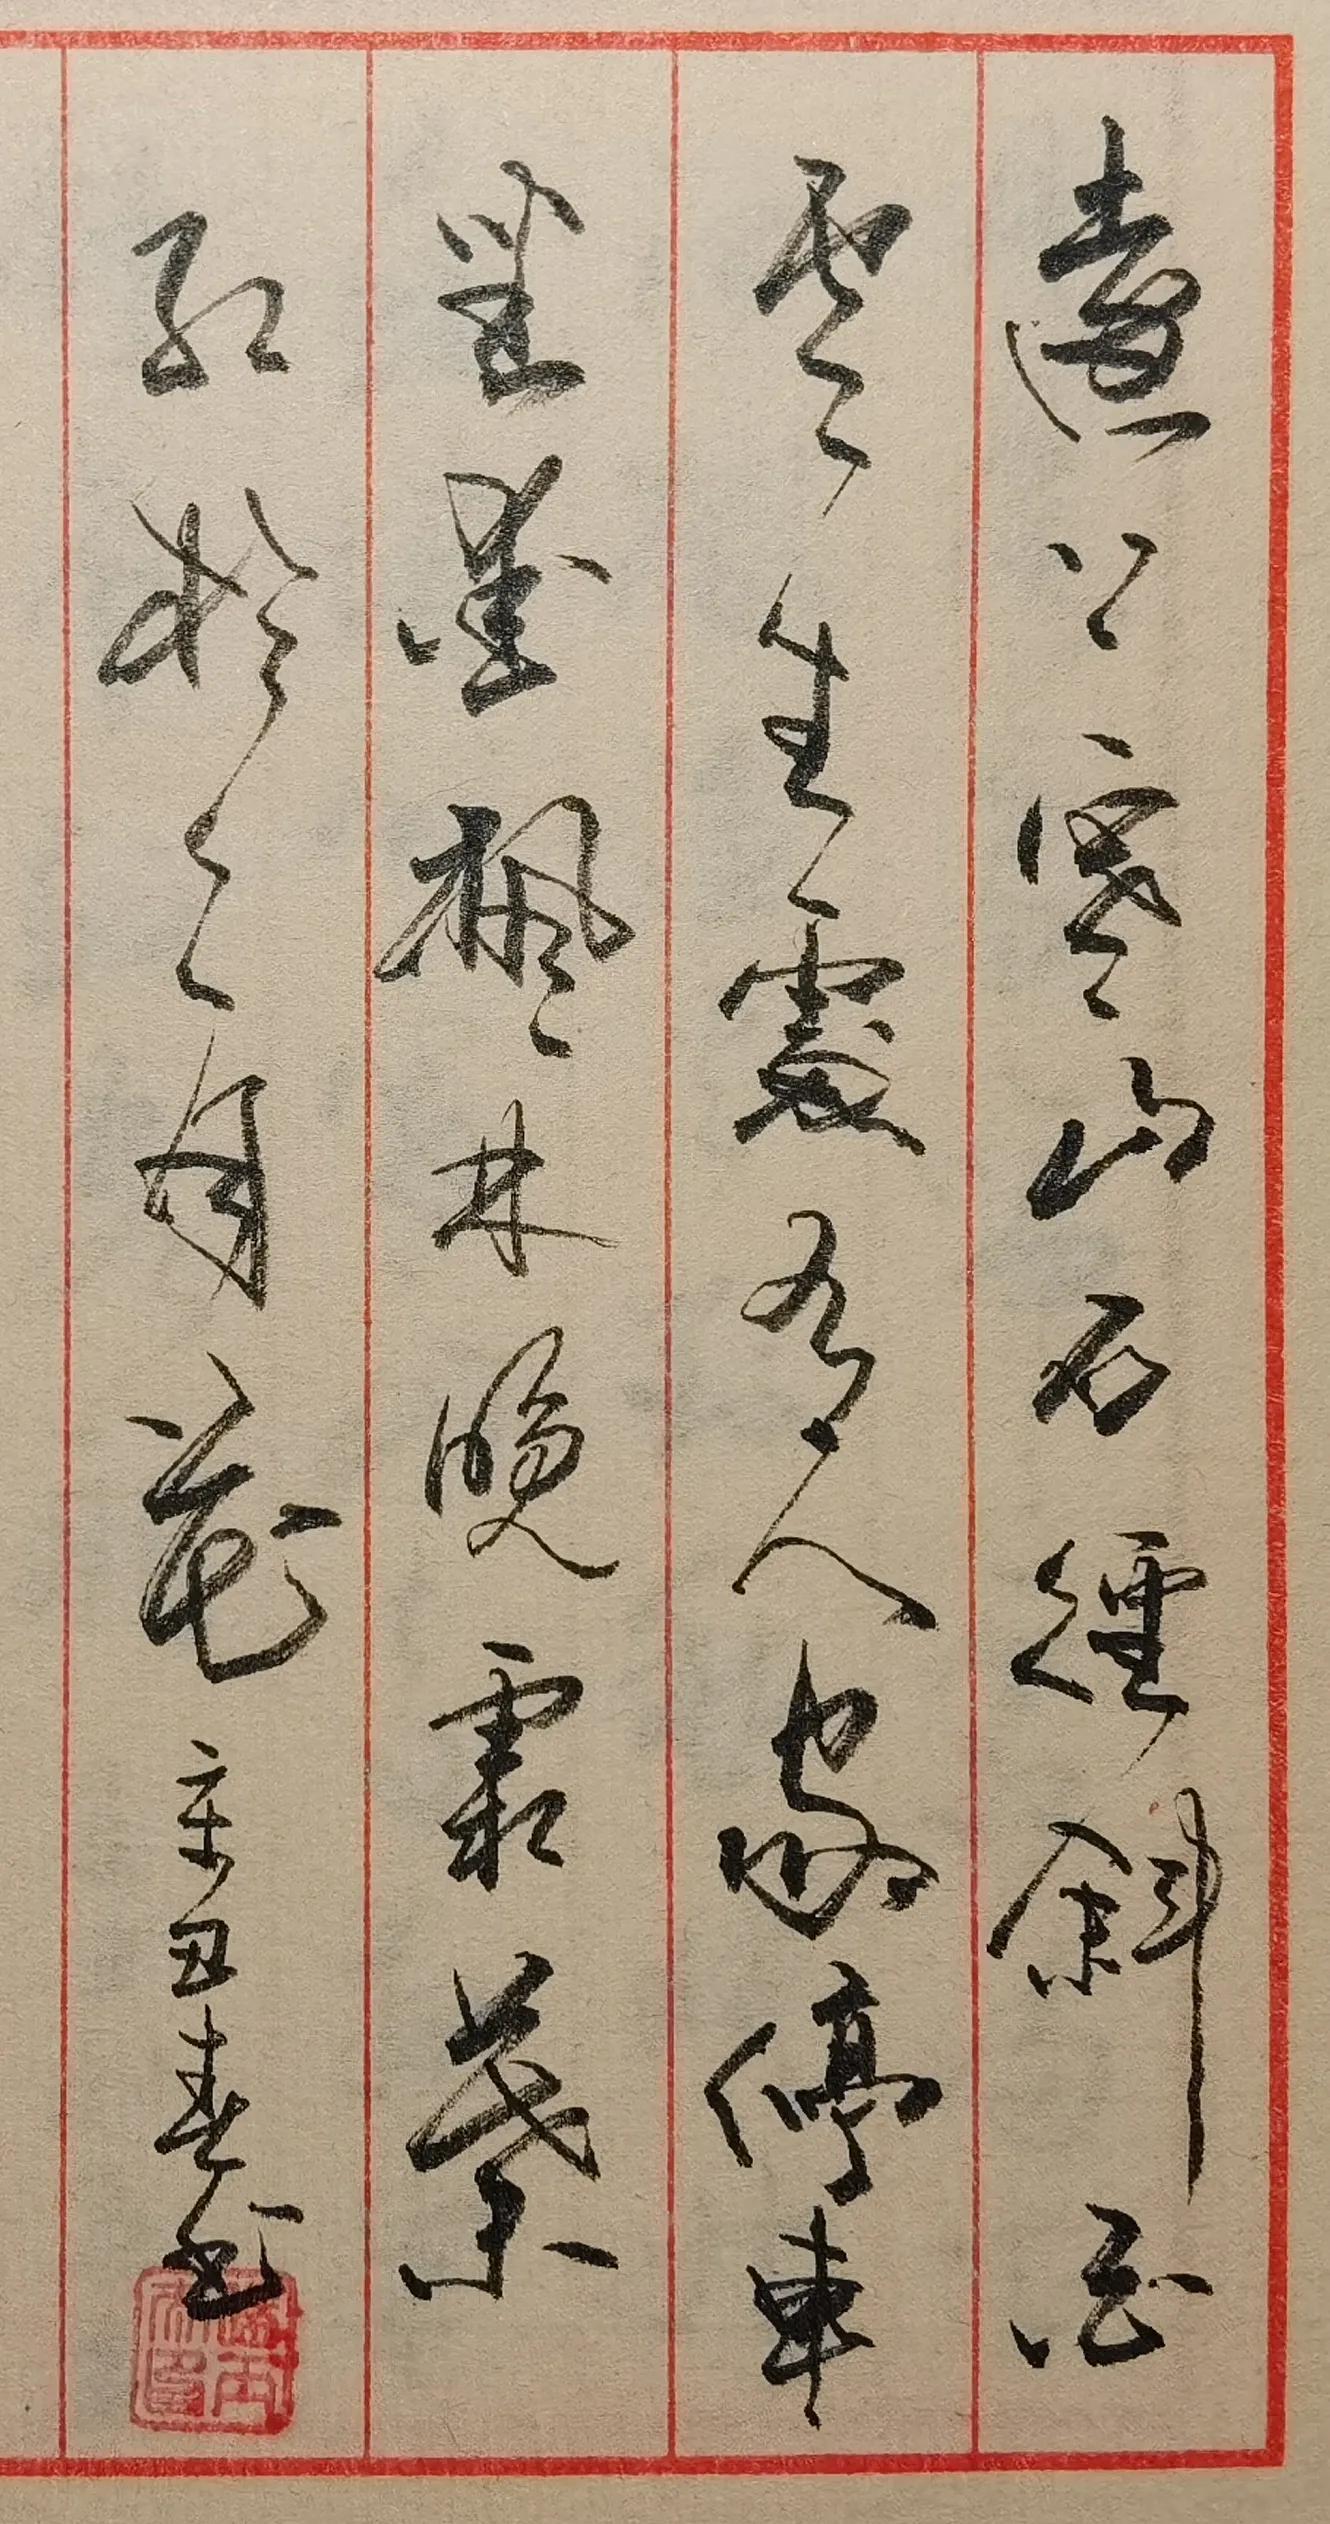 遠上寒山石徑斜白
雲生處有人家停車
坐愛楓林晚霜葉
紅於二月花 辛丑春書